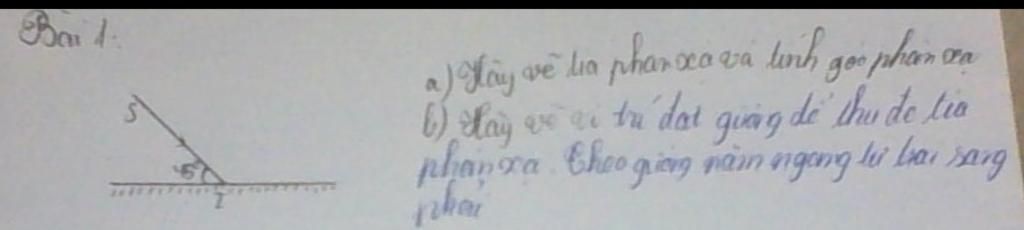 Bài 1:
a) Hãy vẽ tia phản xạ và tính góc phản xạ
b) Hãy vẽ vị trí đặt gương để thu đc tia
phản xạ theo phương nằm ngang từ trái sang
phải
S
45°
I